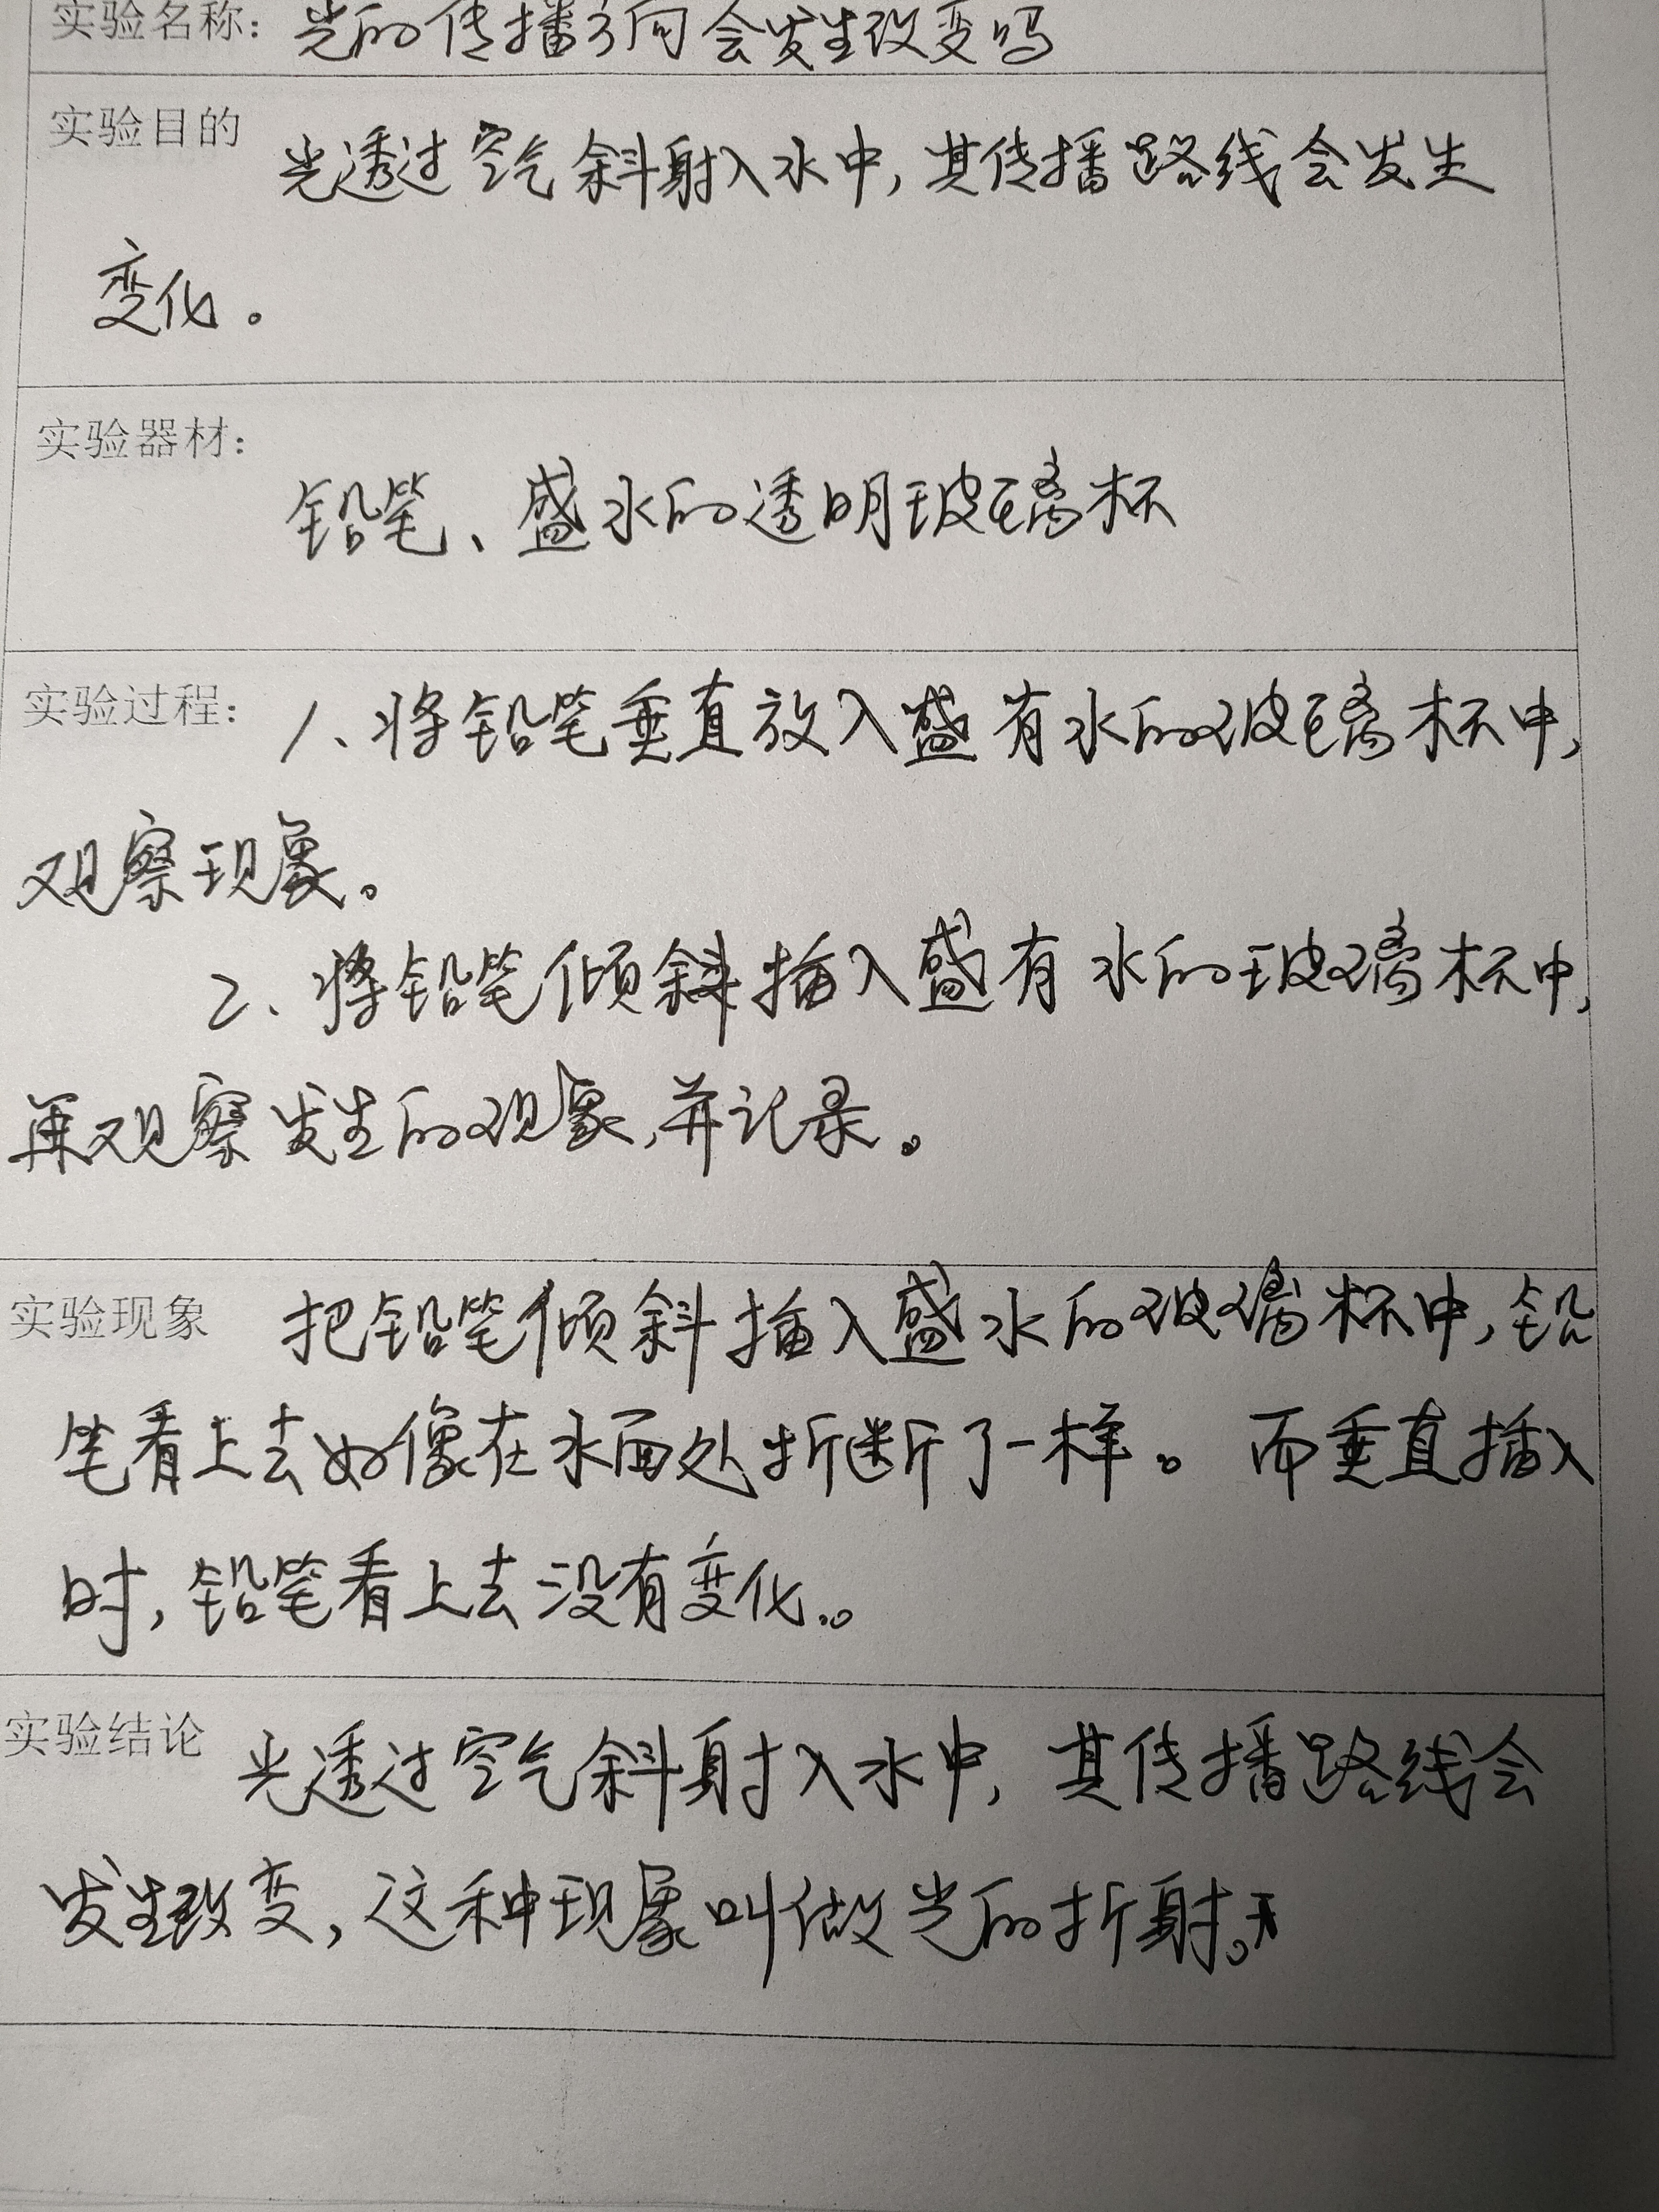 实验名称：光的传播方向会发生改变吗
实验目的 光透过空气斜射入水中，其传播路线会发生
变化。
实验器材：
铅笔、盛水的透明玻璃杯
实验过程：1、将铅笔垂直放入盛有水的玻璃杯中，
观察现象。
2、将铅笔倾斜插入盛有水的玻璃杯中，
再观察发生的现象，并记录。
实验现象 把铅笔倾斜插入盛水的玻璃杯中，铅
笔看上去好像在水面处折断了一样。而垂直插入
时，铅笔看上去没有变化。
实验结论 光透过空气斜射入水中，其传播路线会
发生改变，这种现象叫做光的折射。